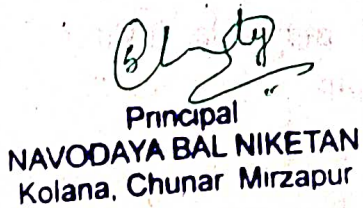 Principal
NAVODAYA BAL NIKETAN
Kolana, Chunar Mirzapur